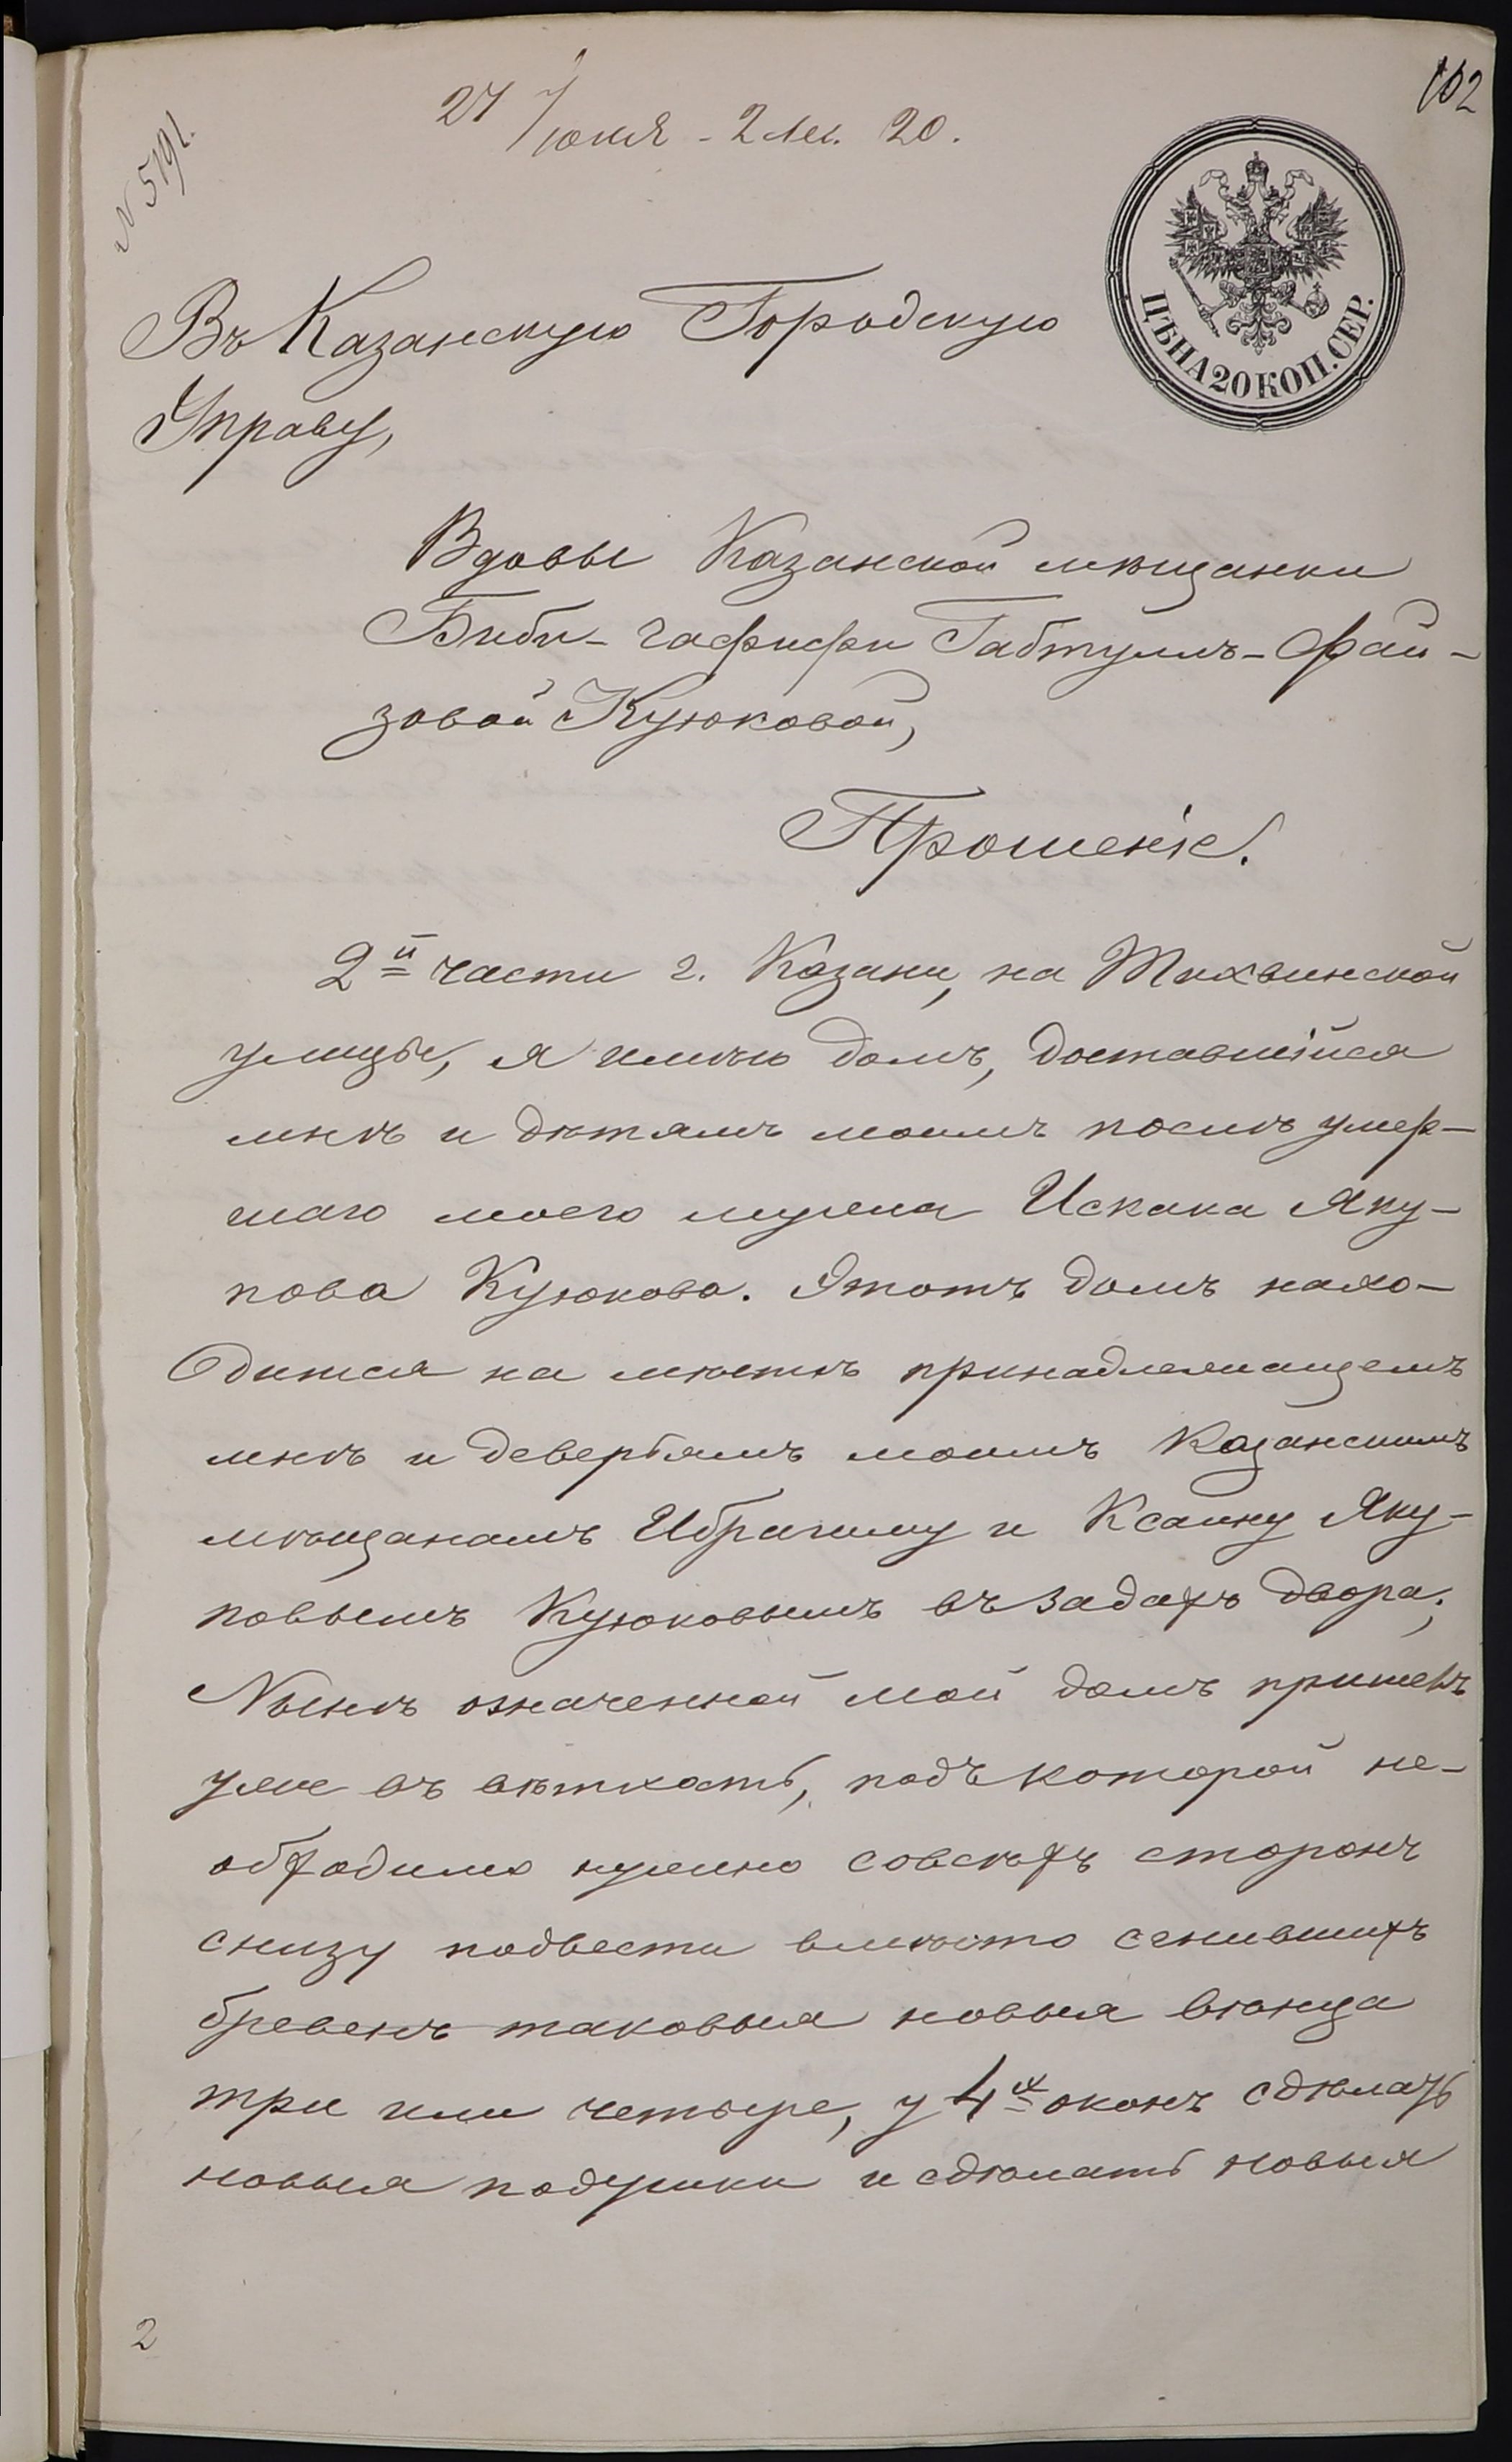 102
27 Июня - 2 М. 20.
N 5191.
ЦѢНА 20 КОП. СЕР.
Въ Казанскую Городскую
Управу,
Вдовы Казанской мѣщанки
Биби-Гафифи Габтуллъ-Фай-
зовой Куюковой,
Прошеніе.
2й части г. Казани, на Тихвинской
улицѣ, я имѣю домъ, доставшійся
мнѣ и дѣтямъ моимъ послѣ умер-
шаго моего мужа Искака Яку-
пова Куюкова. Этотъ домъ нахо-
дится на мѣстѣ принадлежащемъ
мнѣ и деверьямъ моимъ Казанскимъ
мѣщанамъ Ибрагиму и Ксаину Яку-
повымъ Куюковымъ въ задахъ двора;
Нынѣ означенной мой домъ пришелъ
уже въ вѣтхость, подъ которой не-
обходимо нужно совсѣхъ сторонъ
снизу подвести вмѣсто сгнившихъ
бревенъ таковыя новыя вѣнца
три или четыре, у 4х оконъ сдѣлать
новыя подушки и сдѣлать новыя
2